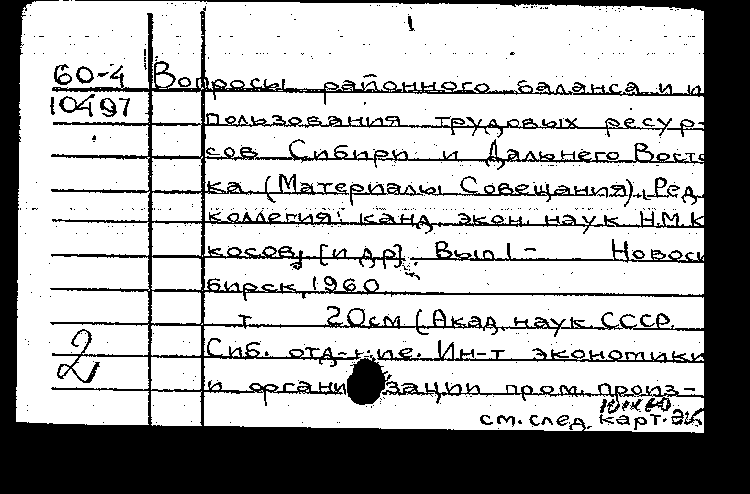 60-4 Вопросы районного баланса и и
10497 пользования трудовых ресур-
сов Сибири и Дальнего Восто
ка (Материалы Совещания). Ред.
коллегия: канд. экон. наук Н.М.К
косов, [и др]. Вып 1 - Новоси
бирск, 1960
т 20см (Акад. наук СССР.
2 Сиб. отд-ние. Ин-т экономики
и организации пром. произ-
см. след. карт.